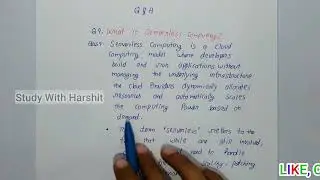 Q & A
Q9. What is Serverless Computing?
Ans: Serverless Computing is a cloud
Computing model where developers
build and run applications without
managing the underlying infrastructure
the cloud Providers dynamically allocates
resources and automatically scales
the computing Power based on
demand.
The term "serverless" refers to the
that while are still involved,
need to handle
Study With Harshit
LIKE, C